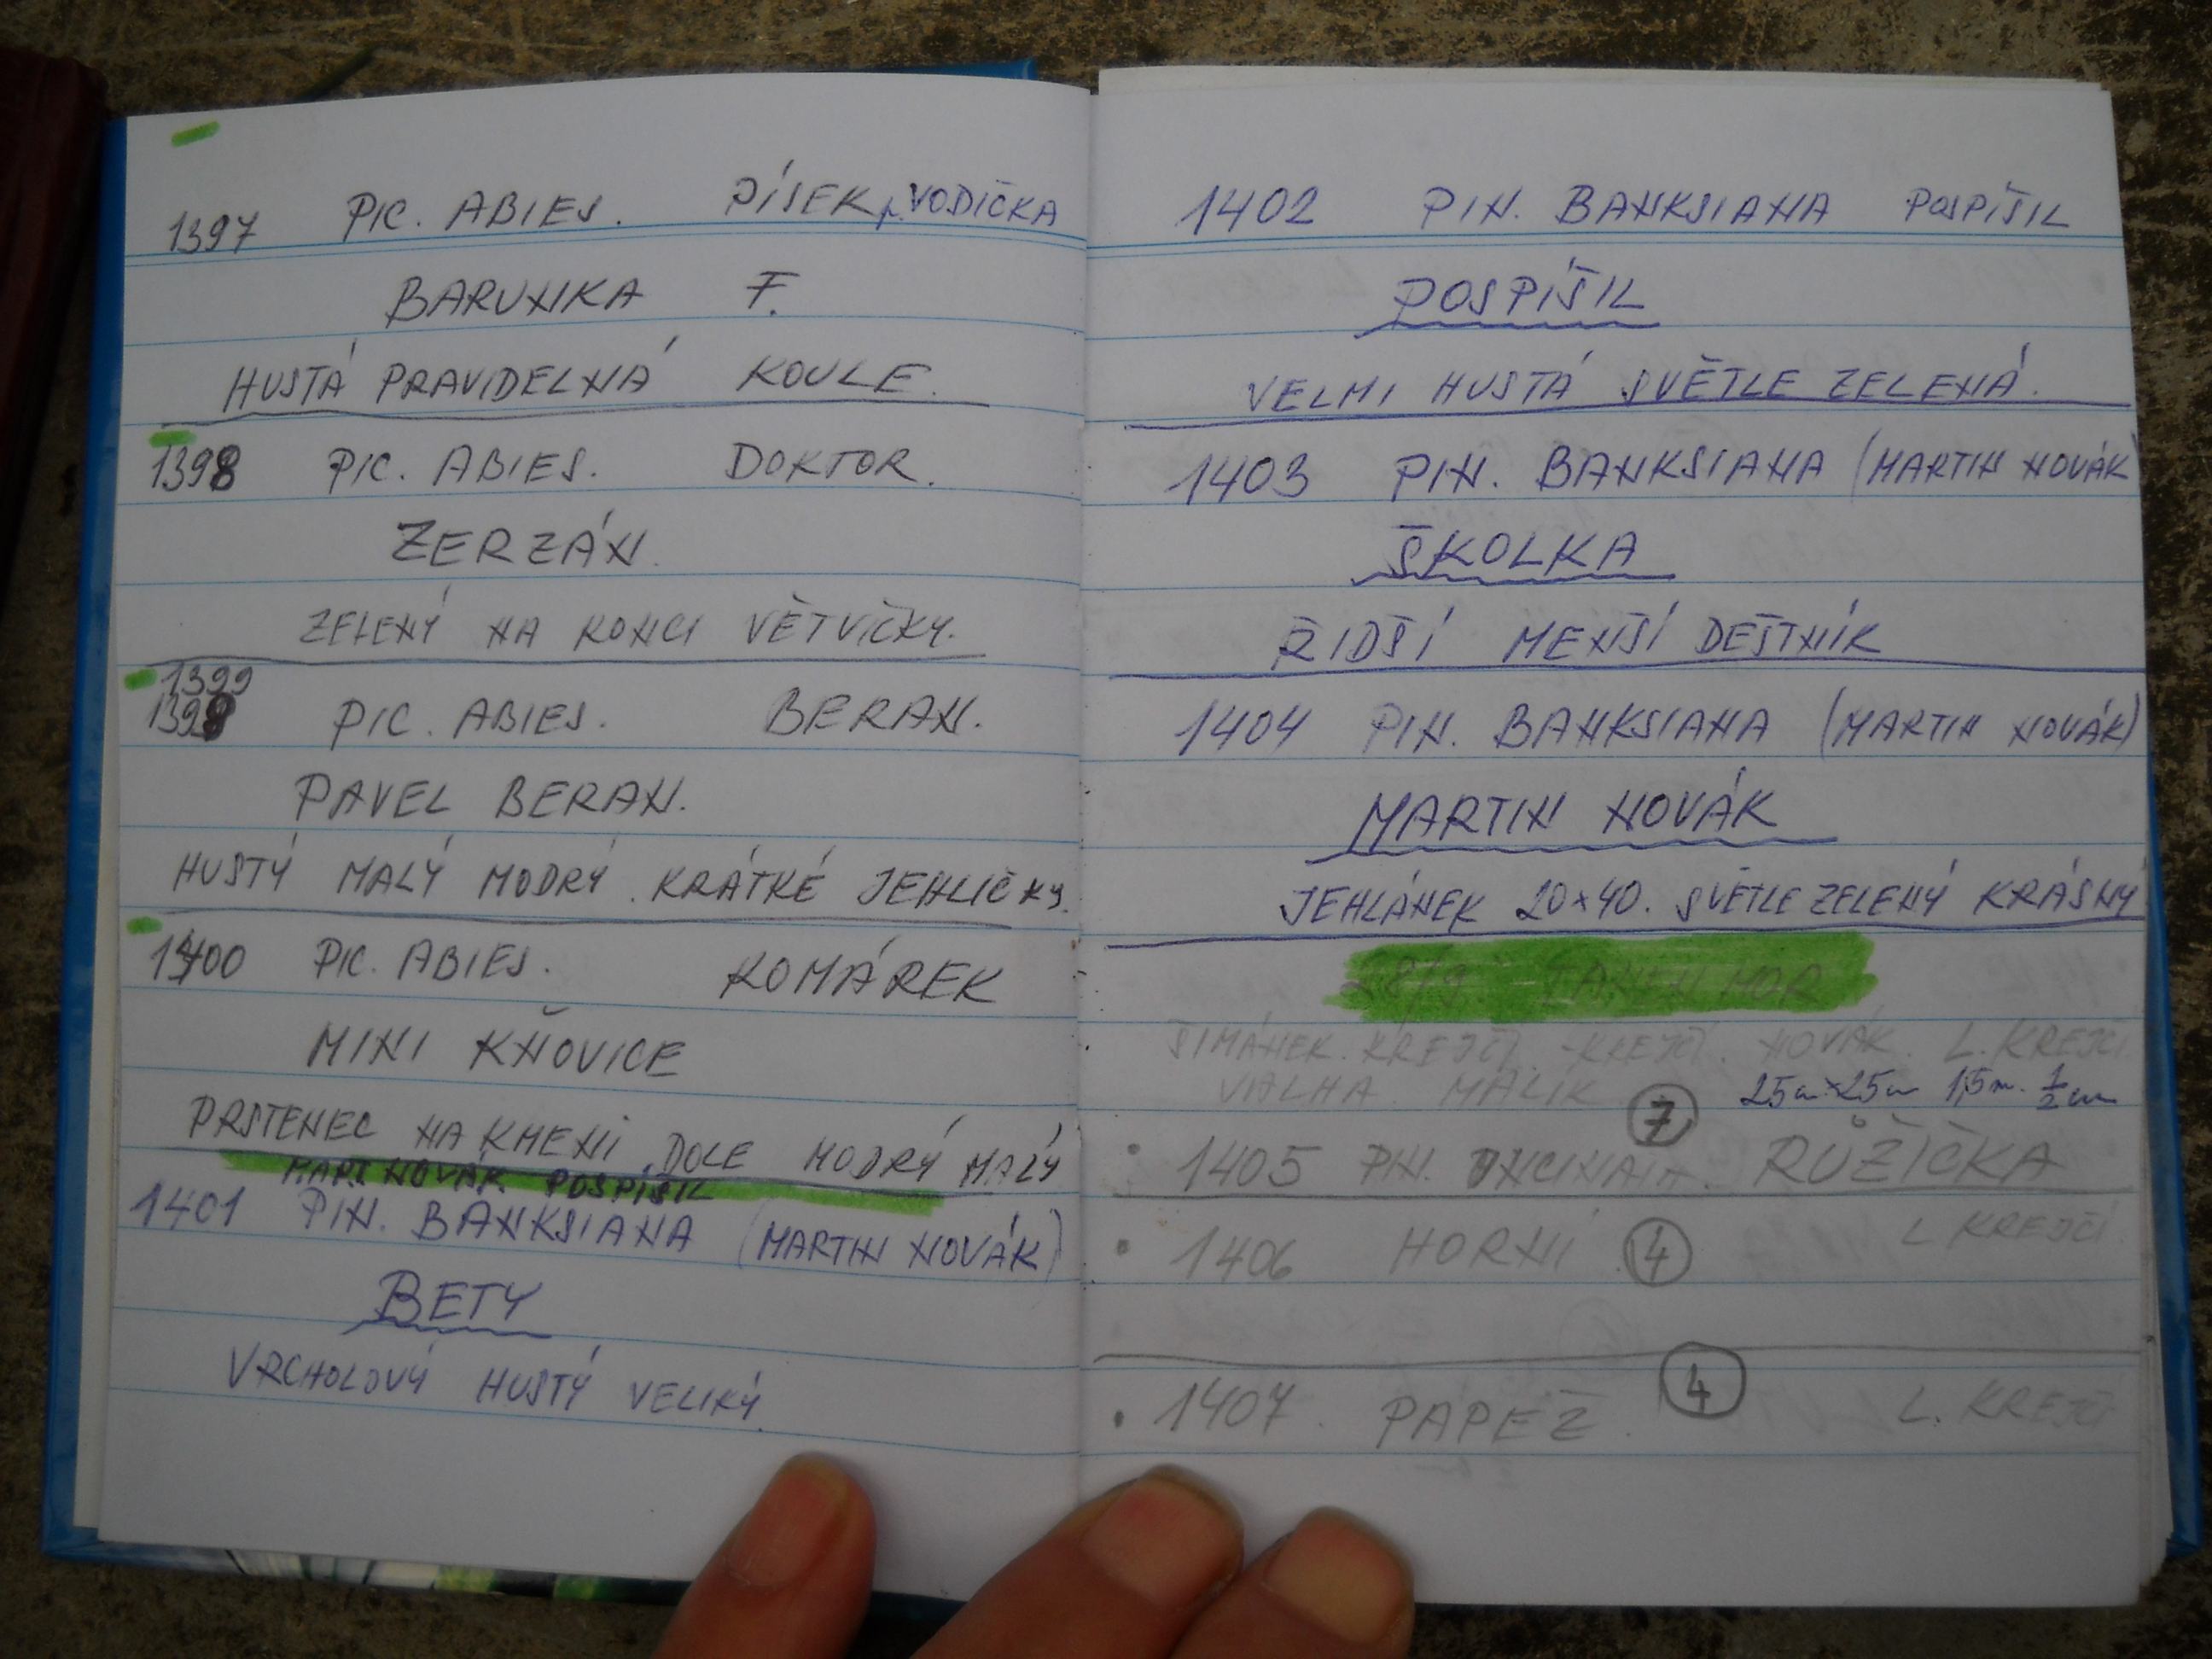 1397 PIC. ABIES. PÍSEK p. VODIČKA
BARUNKA F.
HUSTÁ PRAVIDELNÁ KOULE.
1398 PIC. ABIES. DOKTOR.
ZERZÁN.
ZELENÝ NA KONCI VĚTVIČKY.
1399
1399 PIC. ABIES. BERAN.
PAVEL BERAN.
HUSTÝ MALÝ MODRÝ. KRÁTKÉ JEHLIČKY.
1400 PIC. ABIES. KOMÁREK
MINI KŇOVICE
PRSTENEC NA KMENI DOLE MODRÝ MALÝ
MART NOVÁK POSPÍŠIL
1401 PIN. BANKSIANA (MARTIN NOVÁK)
BETY
VRCHOLOVÝ HUSTÝ VELIKÝ.
1402 PIN. BANKSIANA POSPÍŠIL
POSPÍŠIL
VELMI HUSTÁ SVĚTLE ZELENÁ.
1403 PIN. BANKSIANA (MARTIN NOVÁK)
ŠKOLKA
ŘIDŠÍ MENŠÍ DEŠTNÍK
1404 PIN. BANKSIANA (MARTIN NOVÁK)
MARTIN NOVÁK
JEHLÁNEK 20x40. SVĚTLE ZELENÝ KRÁSNÝ
28/9. MOR
ŠIMÁNEK. KREJČÍ. - KREJČÍ. NOVÁK. L. KREJČÍ
MALÍK 7 25cm x 25cm 1,5m. 1/2 cm
1405 PIN. UNCINATA. RŮŽIČKA
1406 HORNÍ 4 L KREJČÍ.
1407. PAPEŽ. 4 L. KREJČÍ